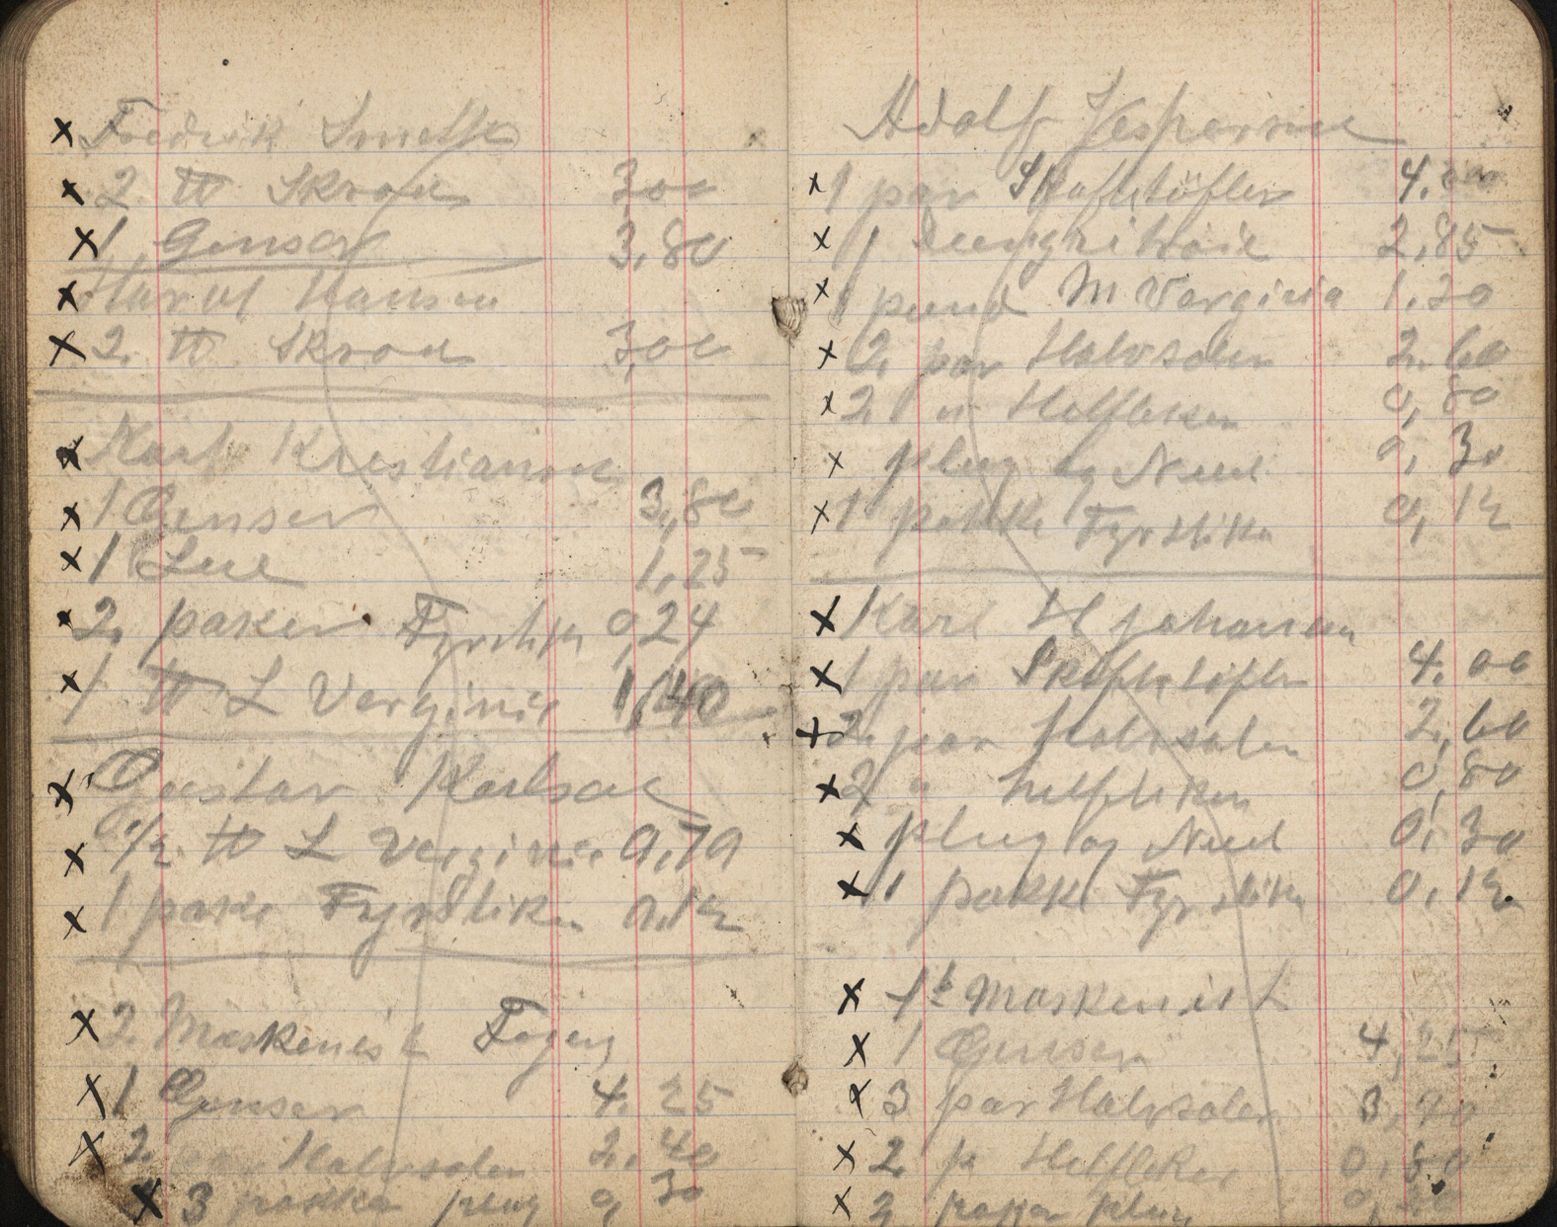 x Fredrik Smith
x 2 ℔ Skroa 3,00
x 1 Genser 3,80
x Harol Hansen
x 2. ℔ Skroa 3,00
x Karl Kristiansen
x 1 Genser 3,80
x 1 Lue 1,25
x 2. paker Fyrstik 0,24
x 1 ℔ L Verginie 1,40
x Gustav Karlsen
x 1/2 ℔ L Verginie 0,70
x 1 pake Fyrstiker 0,12
x 2. Maskenist
x 1 Genser 4.25
x 2 par Halvsoler 2,40
x 3 pakker plug 0,30
Adolf Jespersen
x 1 par Skaftstöfler 4.00
x 1 2,85
x 1 pund M Verginia 1.30
x 2 par Halvsoler 2.60
x 2 " Helfleker 0,80
x plug og Neel 0,30
x 1 pakke Fyrstiker 0,12
x Karl H Johansen
x 1 par Skaftstöfler 4.00
x 2. par Halvsoler 2,60
x 2 " helfleker 0,80
x plug og Neel 0,30
x 1 pakke Fyrstiker 0,12
x 1st Maskenist
x 1 Genser 4,25
x 3 par Halvsoler 3,70
x 2 p Helfleker 0,80
x 2 paker plug